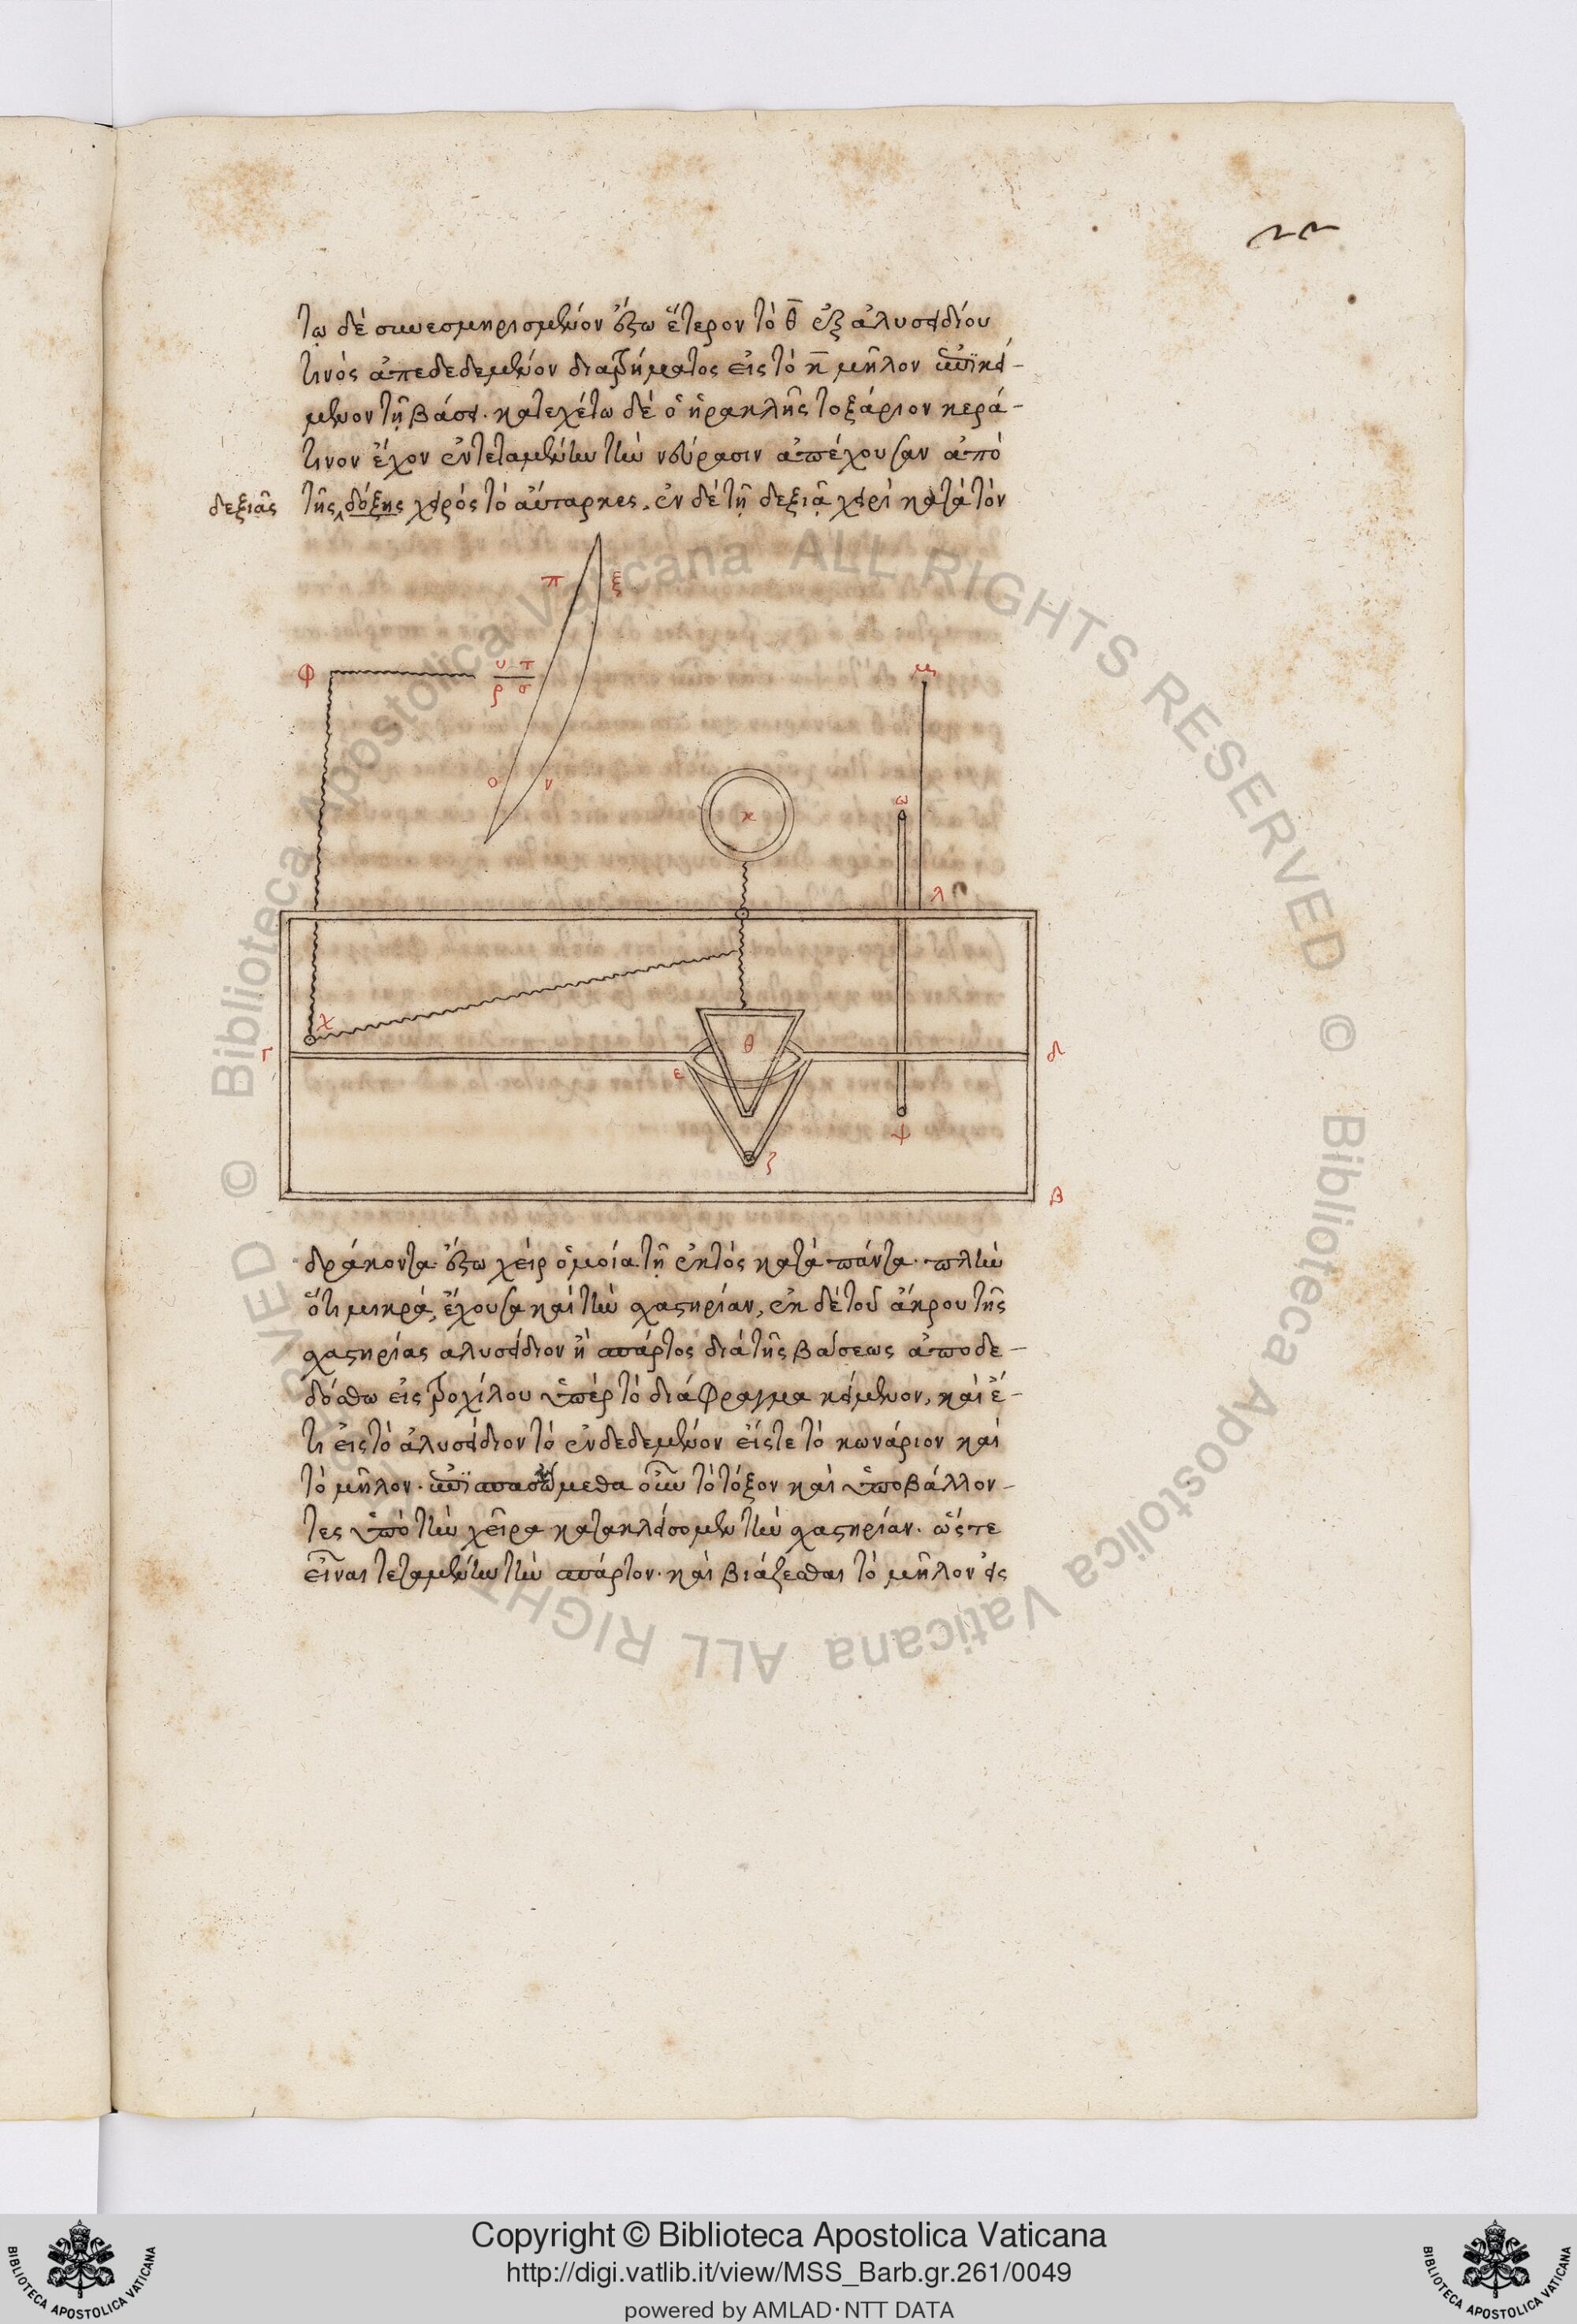 τῳ δὲ συνεσμηρισμένον ἔξω ἕτερον τὸ θ̄ ἐξ ἁλυσειδίου
τινὸς ἀπεδεδεμένον διατρήματος εἰς τὸ κ̄ μῆλον ἐπικεί-
μενον τῇ βάσει. κατεχέτω δὲ ὁ ἡρακλῆς τοξάριον κερά-
τινον ἔχον ἐντεταμένην τὴν νευρασιν ἀπέχουσαν ἀπὸ
δεξιᾶς
τῆς δόξης χειρὸς τὸ αὔταρκες. ἐν δὲ τῇ δεξιᾷ χειρὶ κατὰ τὸν
π ξ
φ υ τ
ρ σ
μ
ο ν
κ
ω
λ
χ
γ θ δ
ε
ψ
ζ
β
δράκοντα ἔξω χεὶρ ὁμοία τῇ ἐκτὸς κατὰ πάντα. πλὴν
ὅτι μικρά, ἔχουσα καὶ τὴν χαστηρίαν, ἐκ δὲ τοῦ ἄκρου τῆς
χαστηρίας αλυσείδιον ἢ σπάρτος διὰ τῆς βάσεως ἀποδε-
δόσθω εἰς τροχίλου ὑπὲρ τὸ διάφραγμα κείμενον, καὶ ἔ-
τι εἰς τὸ ἁλυσείδιον τὸ ἐνδεδεμένον εἴς τε τὸ κωνάριον καὶ
τὸ μῆλον. ἐπισπασώμεθα οὖν τὸ τόξον καὶ ὑποβάλλον-
τες ὑπὸ τὴν χεῖρα κατακλείσομεν τὴν χαστηρίαν. ὥστε
εἶναι τεταμένην τὴν σπάρτον. καὶ βιάζεσθαι τὸ μῆλον εἰς
Copyright © Biblioteca Apostolica Vaticana
http://digi.vatlib.it/view/MSS_Barb.gr.261/0049
powered by AMLAD·NTT DATA
BIBLIOTECA APOSTOLICA VATICANA
BIBLIOTECA APOSTOLICA VATICANA
© Biblioteca Apostolica Vaticana ALL RIGHTS RESERVED © Biblioteca Apostolica Vaticana ALL RIGHTS RESERVED